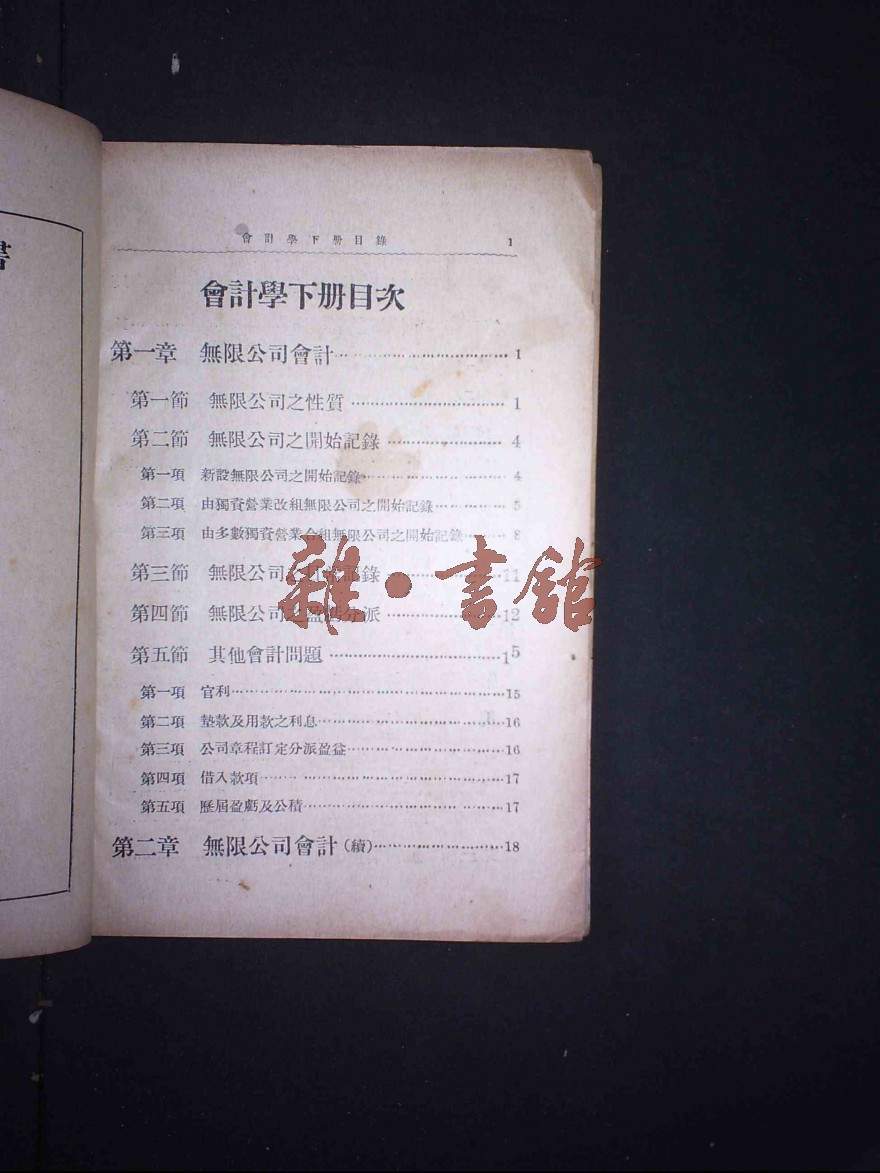 會計學下册目錄 1
會計學下册目次
第一章 無限公司會計 1
第一節 無限公司之性質 1
第二節 無限公司之開始記錄 4
第一項 新設無限公司之開始記錄 4
第二項 由獨資營業改組無限公司之開始記錄 5
第三項 由多數獨資營業合組無限公司之開始記錄 8
第三節 無限公司 記錄 11
第四節 無限公司之盈虧分派 12
第五節 其他會計問題 15
第一項 官利 15
第二項 墊款及用款之利息 16
第三項 公司章程訂定分派盈益 16
第四項 借入款項 17
第五項 歷屆盈虧及公積 17
第二章 無限公司會計(續) 18
雜·書館